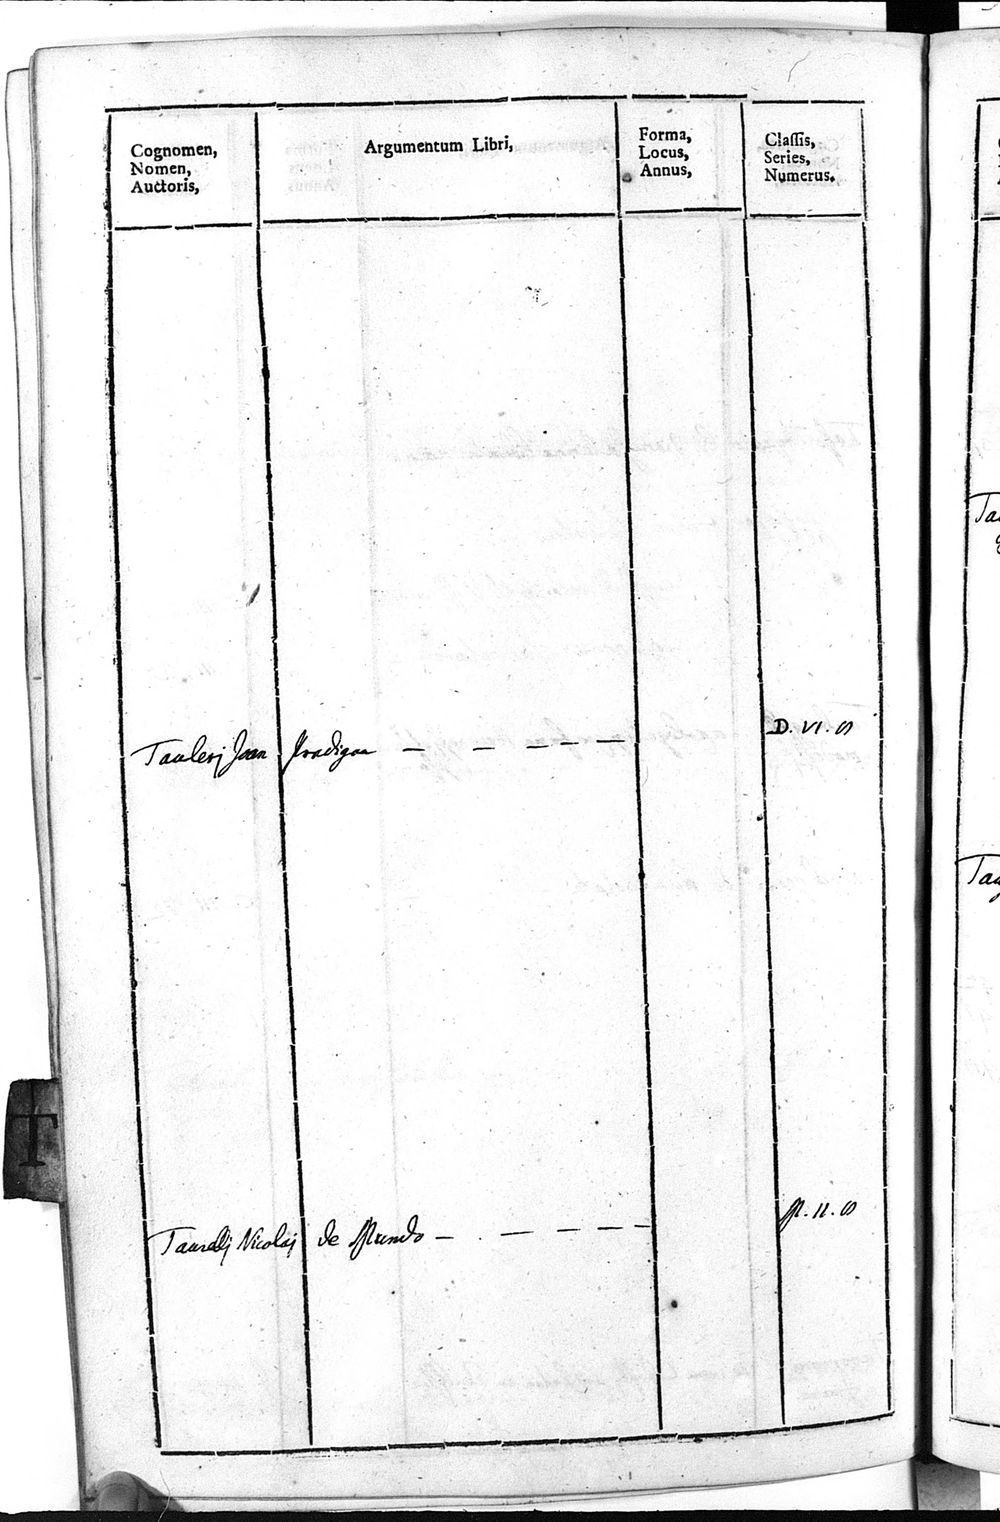 Cognomen,
Nomen,
Auctoris,
Argumentum Libri,
Forma,
Locus,
Annus,
Classis,
Series,
Numerus.
Taulerj Joan Prodigae — — — — — D. VI.
Taurellj Nicolaj de Mundo — — — — — II.
T
Tau
Tau